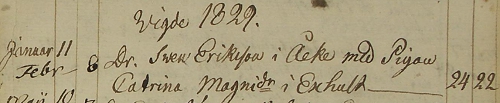 Vigde 1829.
Januar 11
Febr 8 Dr. Swen Erikson i Åeke med Pigan
Catrina Magnidr i Exhult 24 22